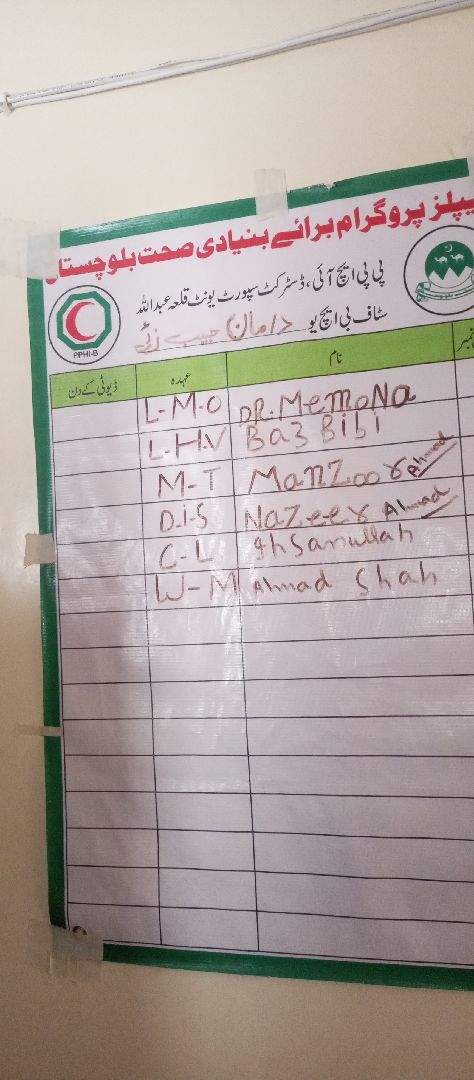 پیپلز پروگرام برائے بنیادی صحت بلوچستان
پی پی ایچ آئی، ڈسٹرکٹ سپورٹ یونٹ قلعہ عبداللہ
سٹاف بی ایچ یو دامان حبیب زئی
PPHI-B
نمبر نام عہدہ ڈیوٹی کے دن
L-M-O DR. MemoNa
L-H-V Baz Bibi
M-T Manzoor Ahmad
D-I-S Nazeer Ahmad
C-L Ihsanullah
W-M Ahmad Shah